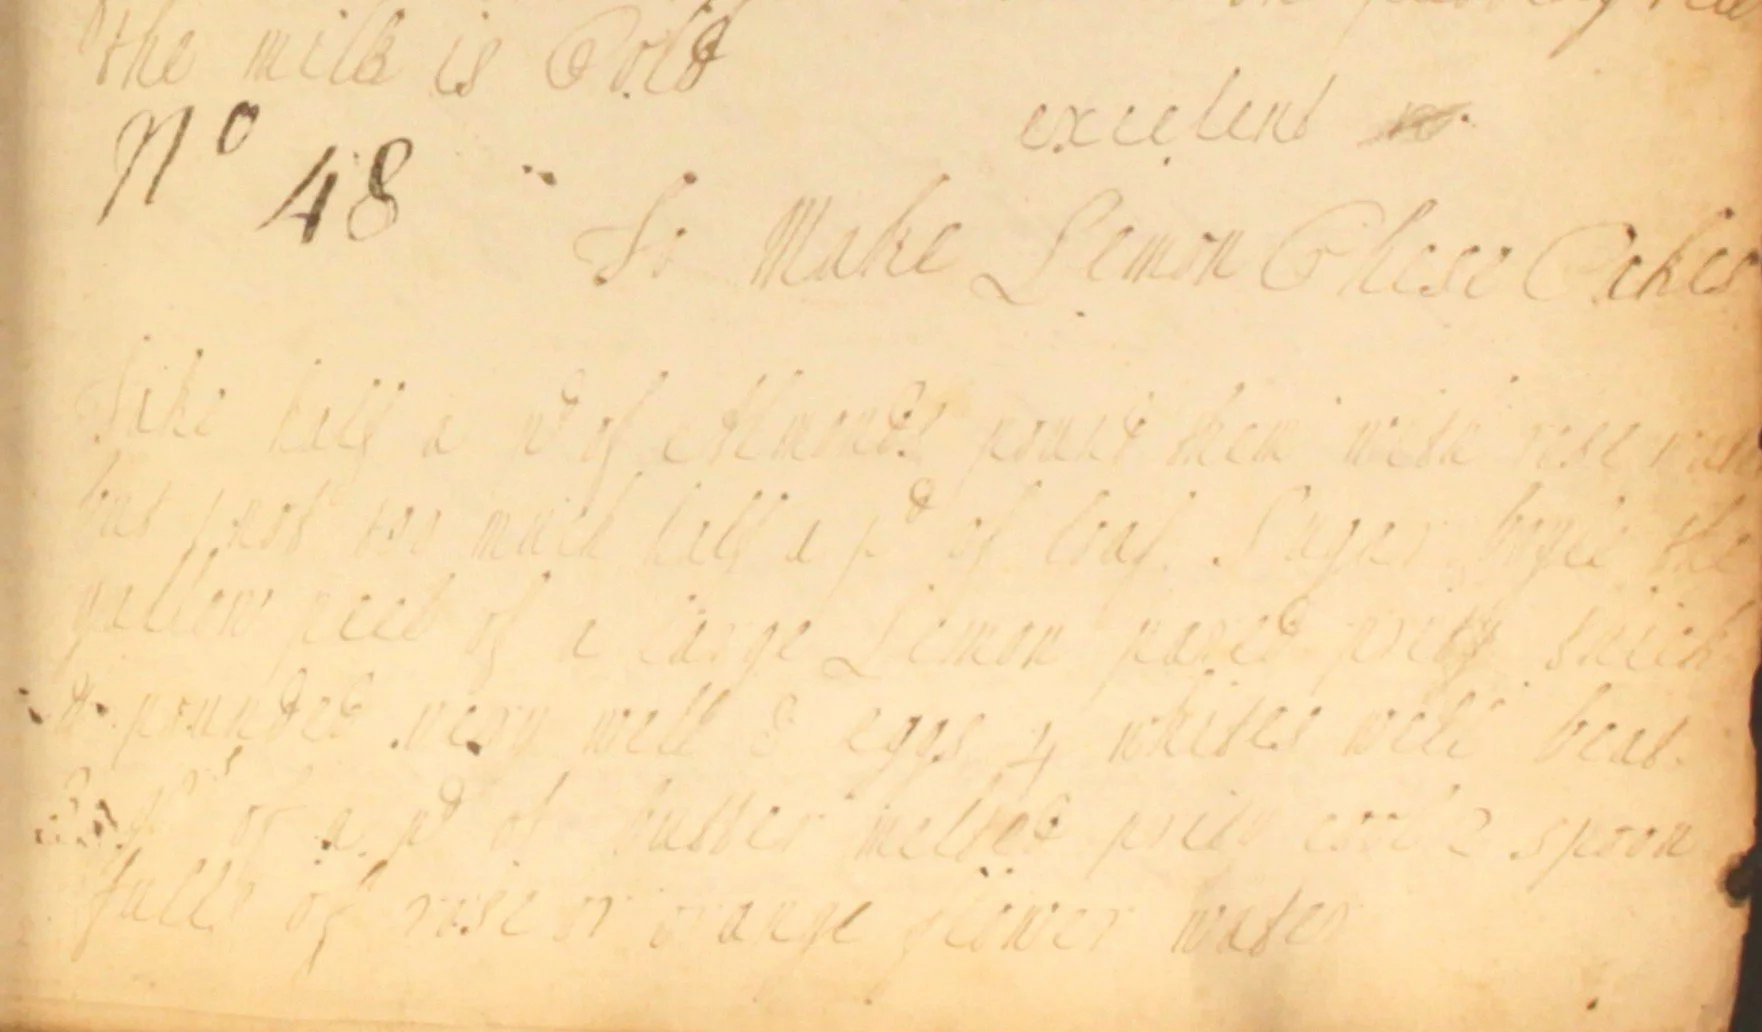 the milk is Cold
excelent
No 48
To Make Lemon Chese Cakes
Take half a pd of Allmonds pound them with rose
but not too much half a pd of loaf Sugar boyle the
yallow peel of a large Lemon pared prity thick
& pounded very well 8 eggs 4 whites well beat
of a pd of butter melted prity coole 2 spoon
fulls of rose or orange flower water